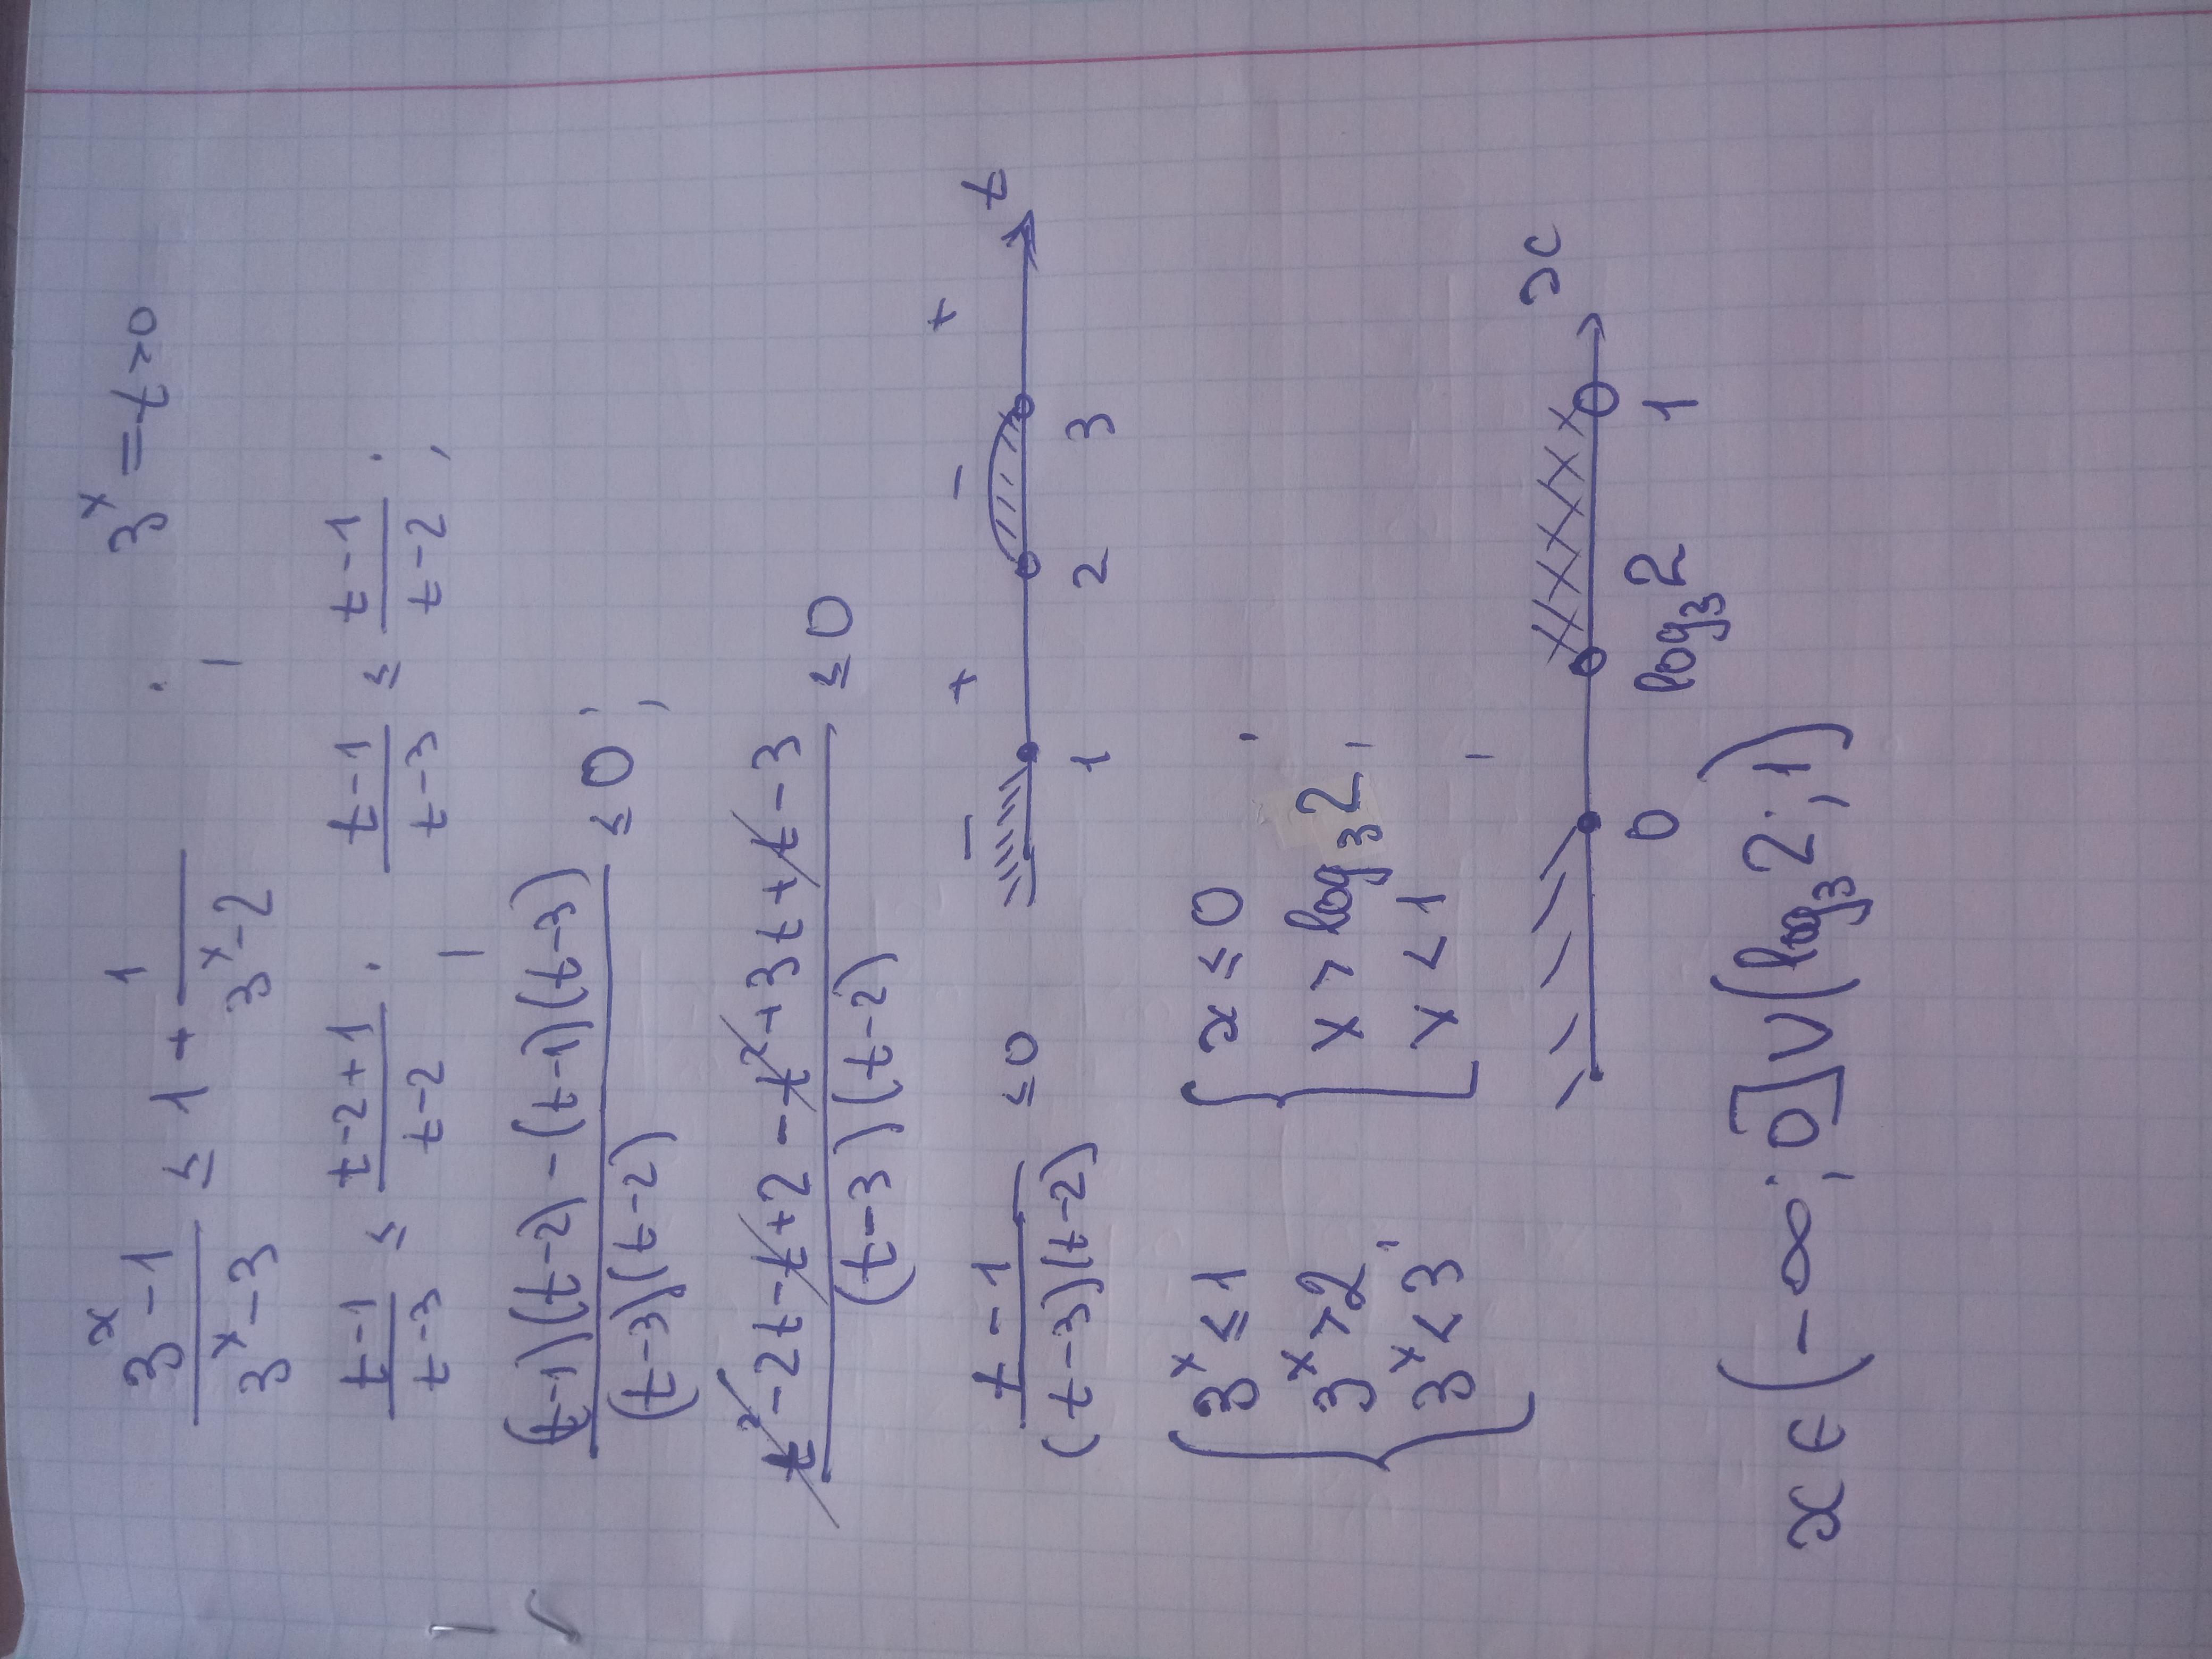 (3^x-1)/(3^x-3) ≤ 1 + 1/(3^x-2) ; 3^x = t > 0
(t-1)/(t-3) ≤ (t-2+1)/(t-2) ; (t-1)/(t-3) ≤ (t-1)/(t-2) ;
((t-1)(t-2) - (t-1)(t-3))/((t-3)(t-2)) ≤ 0 ;
(t²-2t-t+2-t²+3t+t-3)/((t-3)(t-2)) ≤ 0
(t-1)/((t-3)(t-2)) ≤ 0
- + - +
1 2 3 t
{ 3^x ≤ 1 { x ≤ 0 ;
3^x > 2 , x > log₃2 ,
3^x < 3 x < 1
0 log₃2 1 x
x ∈ (-∞; 0] ∪ (log₃2; 1)